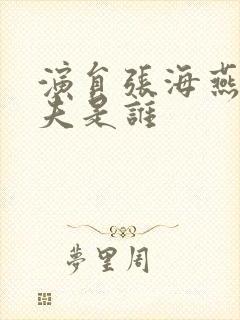 演員張海燕
夫是誰
夢里周